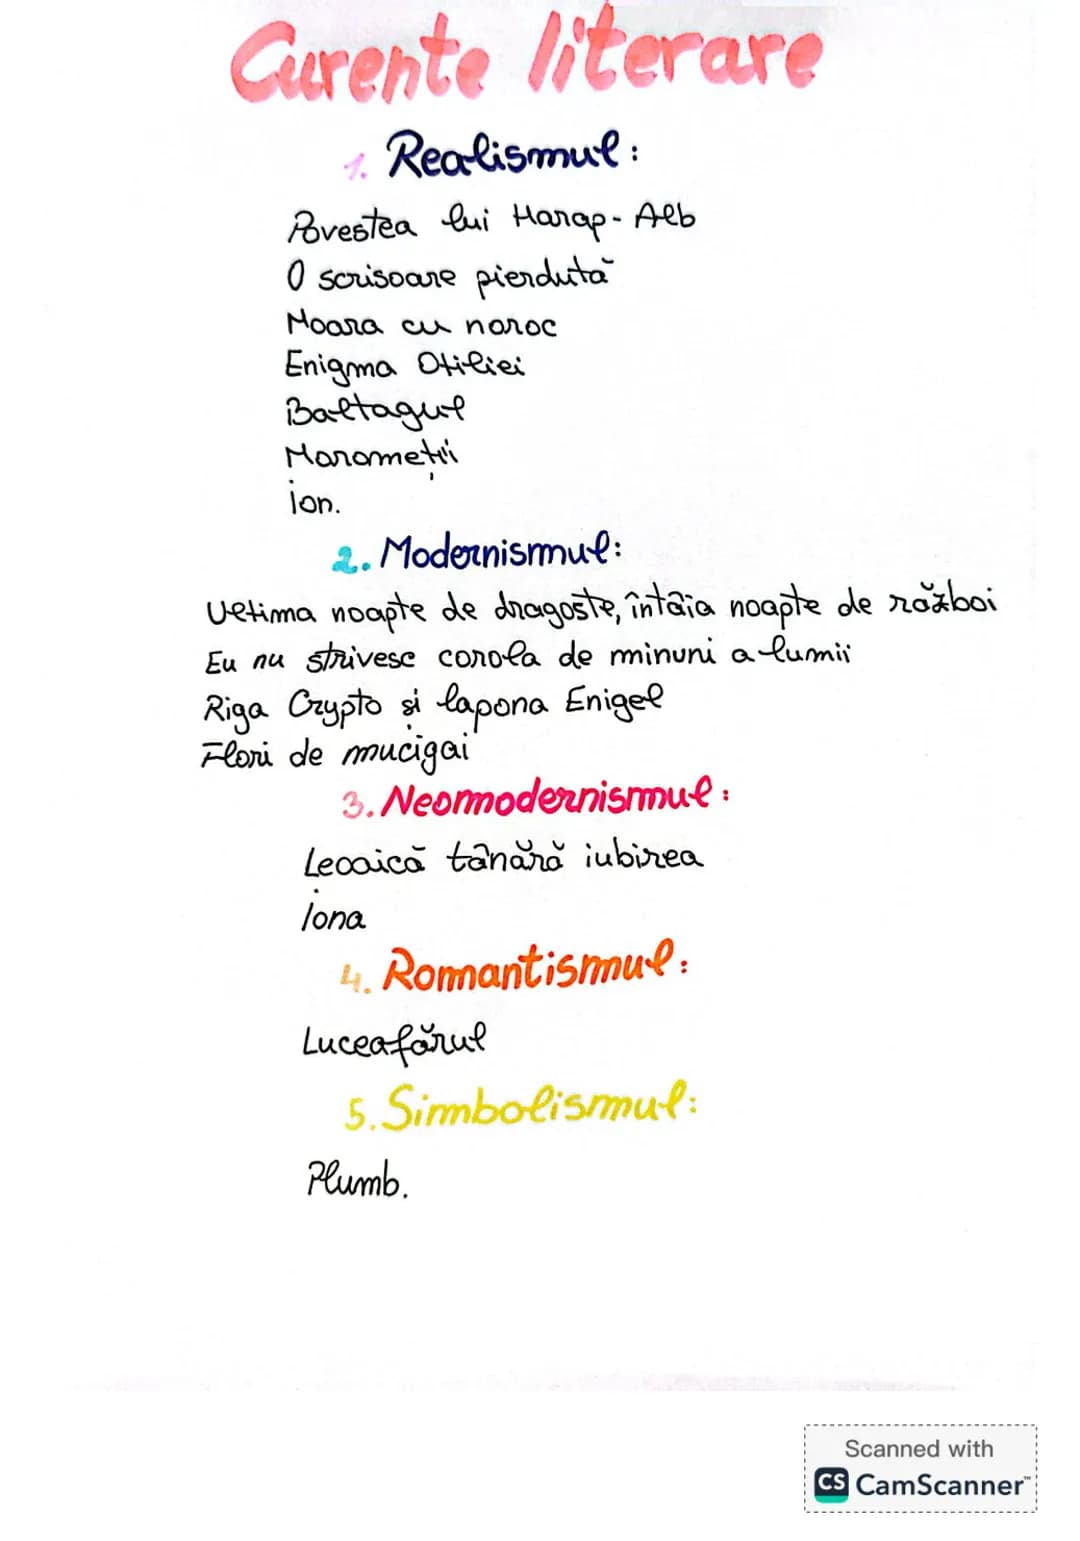 Curente literare
1. Realismul:
Povestea lui Harap-Alb
O scrisoare pierdută
Moara cu noroc
Enigma Otiliei
Baltagul
Moromeții
ion.
2. Modernismul:
Ultima noapte de dragoste, întâia noapte de război
Eu nu strivesc corola de minuni a lumii
Riga Crypto și lapona Enigel
Flori de mucigai
3. Neomodernismul:
Leoaică tânără iubirea
Iona
4. Romantismul:
Luceafărul
5. Simbolismul:
Plumb.
Scanned with
CS CamScanner™